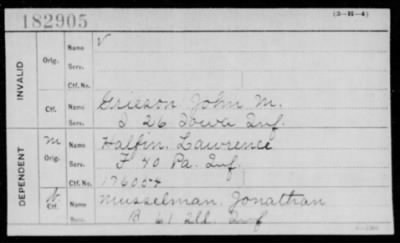 182905
(3-H-4)
INVALID
Orig.
Name
V
Serv.
Ctf. No.
Ctf.
Name
Grieson John M.
Serv.
I 26 Iowa Inf.
DEPENDENT
M
Orig.
Name
Halfin, Lawrence
Serv.
F 40 Pa. Inf.
Ctf. No.
176054
Ctf.
Name
Musselman, Jonathan
Serv.
B 61 Ill. Inf